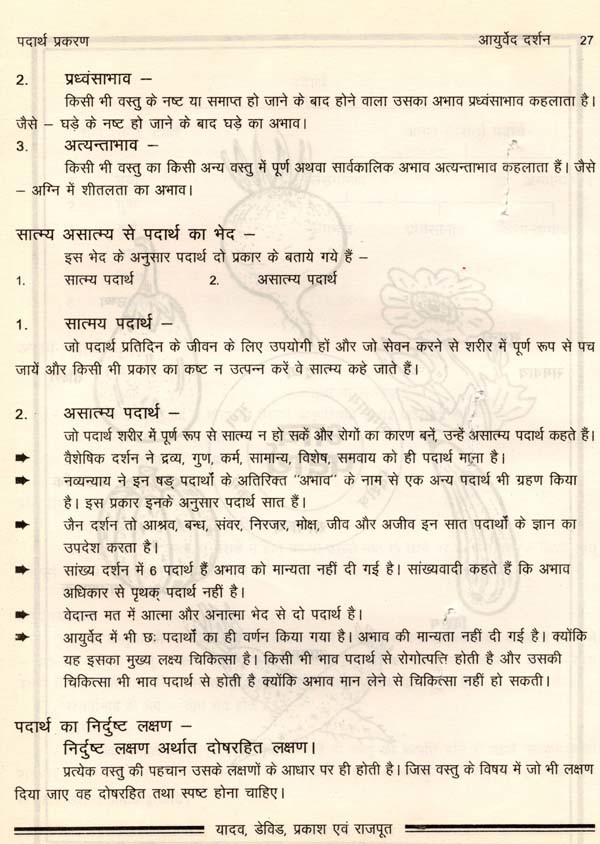 पदार्थ प्रकरण आयुर्वेद दर्शन 27
2. प्रध्वंसाभाव –
किसी भी वस्तु के नष्ट या समाप्त हो जाने के बाद होने वाला उसका अभाव प्रध्वंसाभाव कहलाता है।
जैसे – घड़े के नष्ट हो जाने के बाद घड़े का अभाव।
3. अत्यन्ताभाव –
किसी भी वस्तु का किसी अन्य वस्तु में पूर्ण अथवा सार्वकालिक अभाव अत्यन्ताभाव कहलाता हैं। जैसे
– अग्नि में शीतलता का अभाव।
सात्म्य असात्म्य से पदार्थ का भेद –
इस भेद के अनुसार पदार्थ दो प्रकार के बताये गये हैं –
1. सात्म्य पदार्थ 2. असात्म्य पदार्थ
1. सात्मय पदार्थ –
जो पदार्थ प्रतिदिन के जीवन के लिए उपयोगी हों और जो सेवन करने से शरीर में पूर्ण रूप से पच
जायें और किसी भी प्रकार का कष्ट न उत्पन्न करें वे सात्म्य कहे जाते हैं।
2. असात्म्य पदार्थ –
जो पदार्थ शरीर में पूर्ण रूप से सात्म्य न हो सकें और रोगों का कारण बनें, उन्हें असात्म्य पदार्थ कहते हैं।
वैशेषिक दर्शन ने द्रव्य, गुण, कर्म, सामान्य, विशेष, समवाय को ही पदार्थ माना है।
नव्यन्याय ने इन षड् पदार्थों के अतिरिक्त "अभाव" के नाम से एक अन्य पदार्थ भी ग्रहण किया
है। इस प्रकार इनके अनुसार पदार्थ सात हैं।
जैन दर्शन तो आश्रव, बन्ध, संवर, निरजर, मोक्ष, जीव और अजीव इन सात पदार्थों के ज्ञान का
उपदेश करता है।
सांख्य दर्शन में 6 पदार्थ हैं अभाव को मान्यता नहीं दी गई है। सांख्यवादी कहते हैं कि अभाव
अधिकार से पृथक् पदार्थ नहीं है।
वेदान्त मत में आत्मा और अनात्मा भेद से दो पदार्थ है।
आयुर्वेद में भी छः पदार्थों का ही वर्णन किया गया है। अभाव की मान्यता नहीं दी गई है। क्योंकि
यह इसका मुख्य लक्ष्य चिकित्सा है। किसी भी भाव पदार्थ से रोगोत्पत्ति होती है और उसकी
चिकित्सा भी भाव पदार्थ से होती है क्योंकि अभाव मान लेने से चिकित्सा नहीं हो सकती।
पदार्थ का निर्दुष्ट लक्षण –
निर्दुष्ट लक्षण अर्थात दोषरहित लक्षण।
प्रत्येक वस्तु की पहचान उसके लक्षणों के आधार पर ही होती है। जिस वस्तु के विषय में जो भी लक्षण
दिया जाए वह दोषरहित तथा स्पष्ट होना चाहिए।
यादव, डेविड, प्रकाश एवं राजपूत